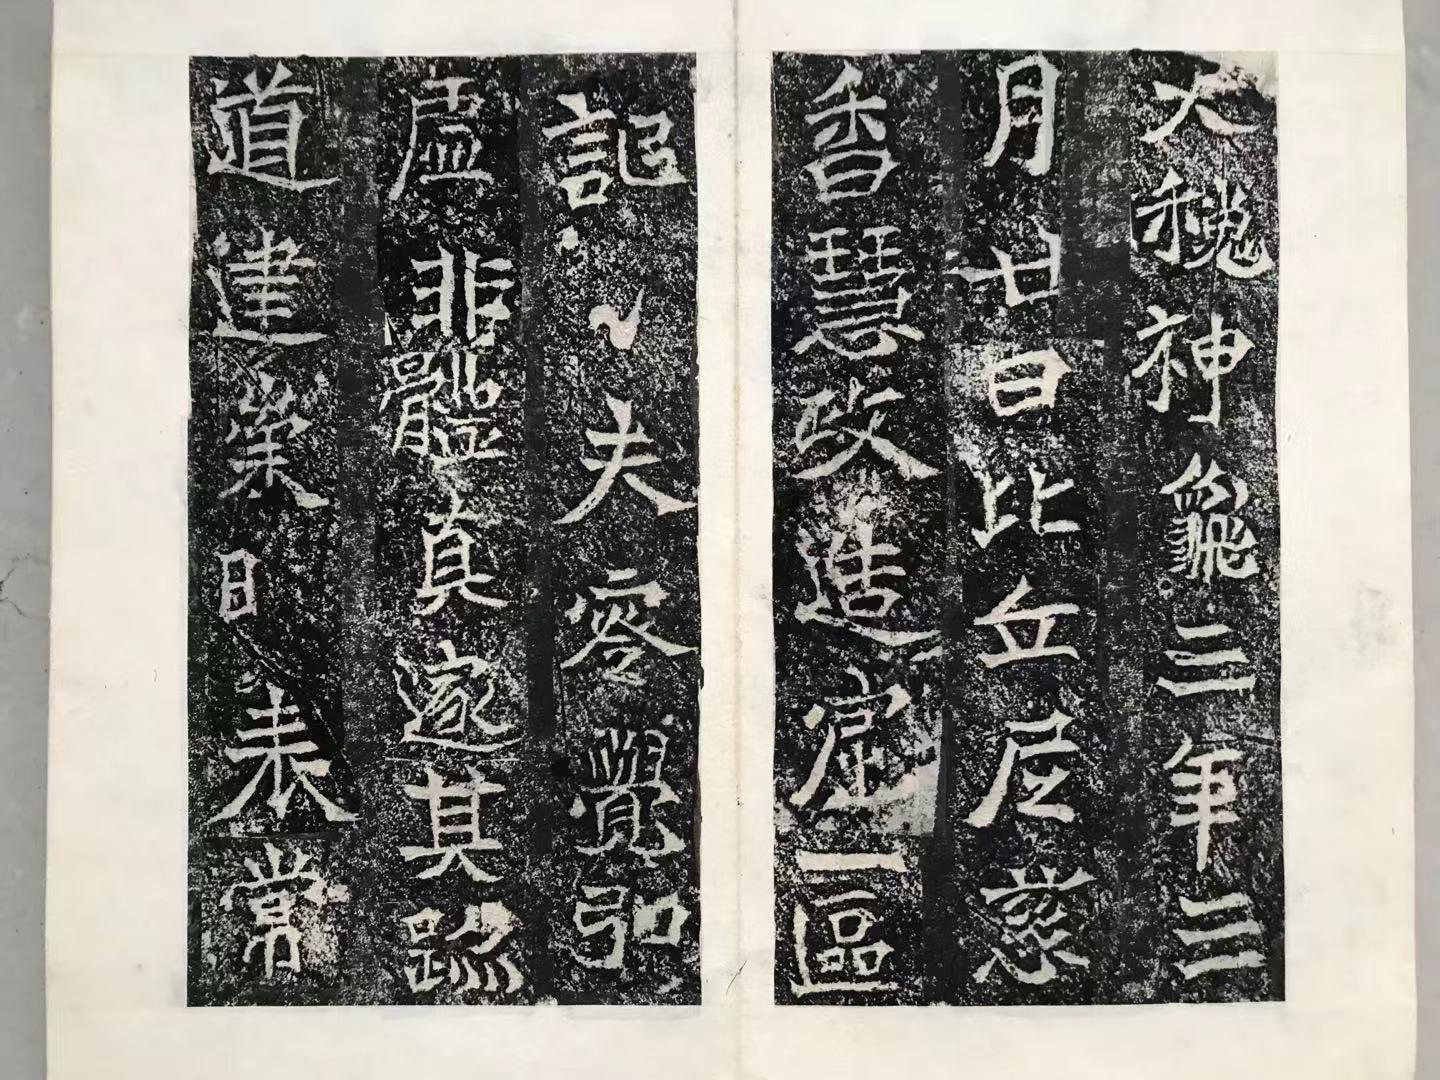 大魏神龜三年三
月廿日比丘尼慈
香慧政造窟一區
記之夫零覺弘
虛非體真邃其跡
道建崇日表常